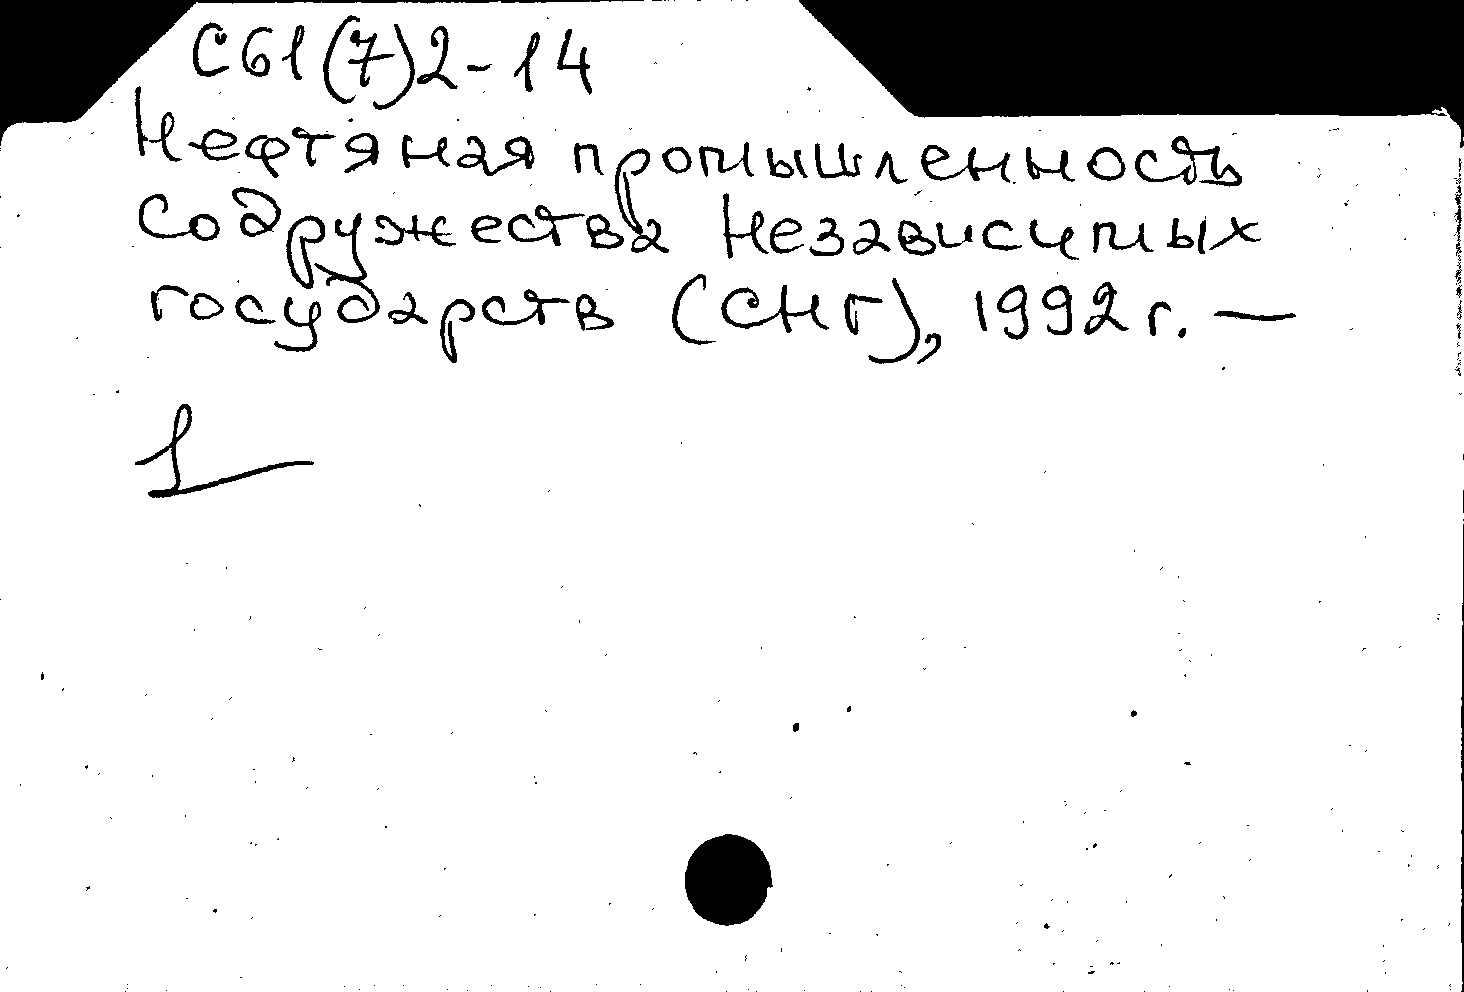 С61(7)2-14
Нефтяная промышленность
Содружества Независимых
государств (СНГ), 1992 г. —
1